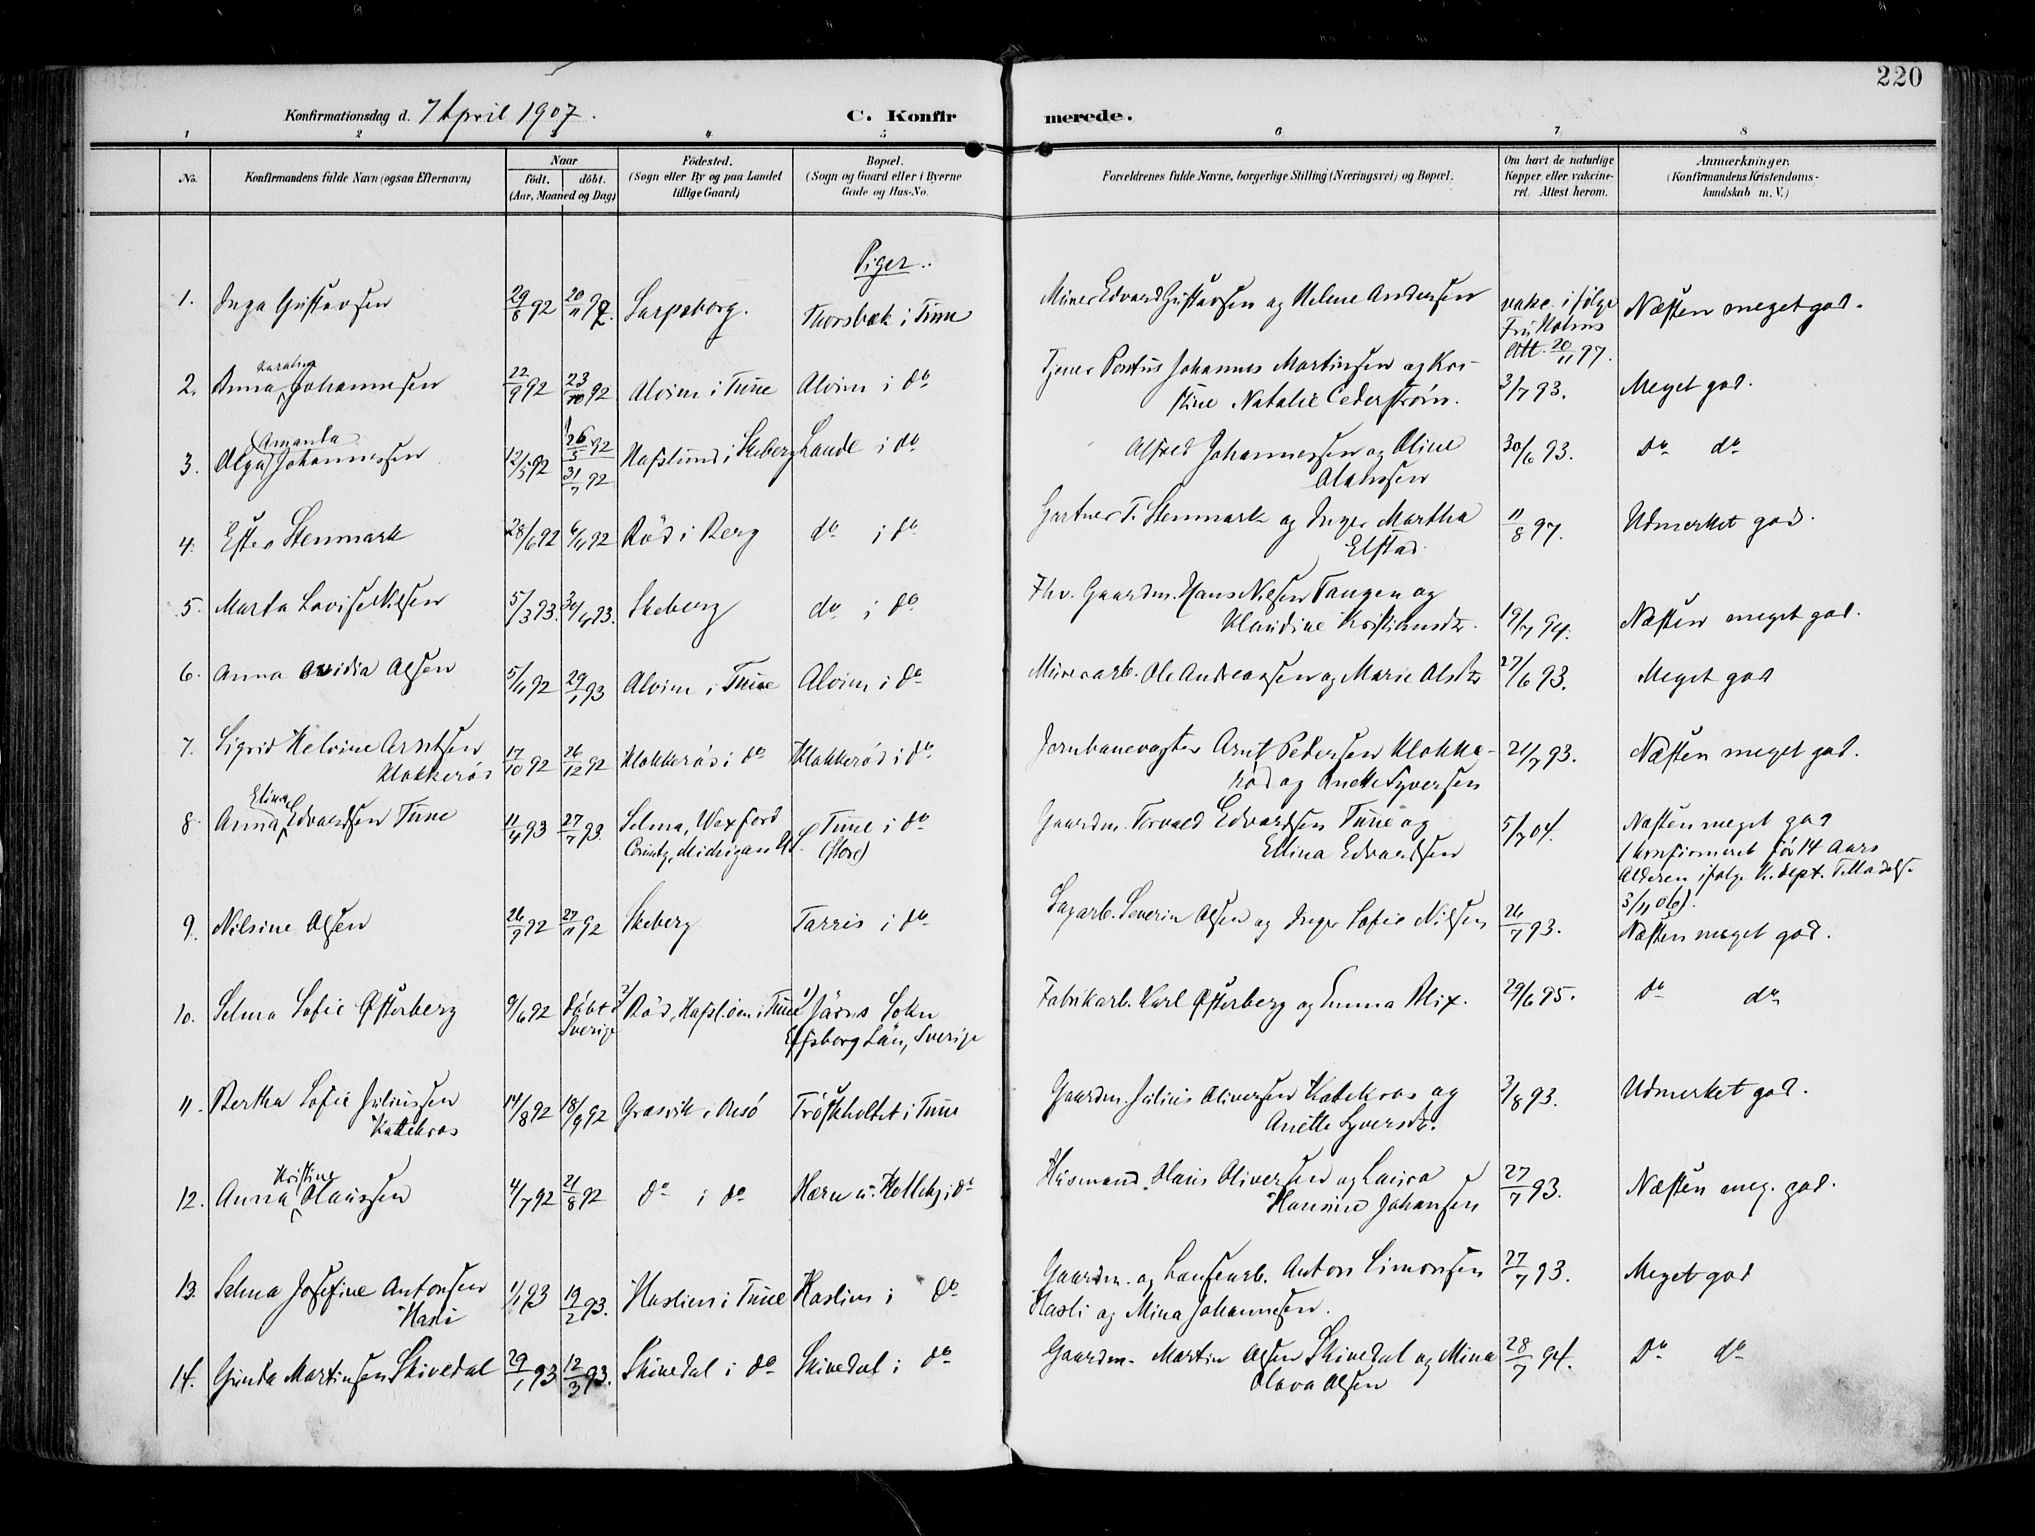 220
Konfirmationsdag d. 7 April 1907.
C. Konfirmerede.
1 2 3 4 5 6 7 8
No.
Konfirmandens fulde Navn (ogsaa Efternavn)
Naar
født. døbt.
(Aar, Maaned og Dag)
Fødested.
(Sogn eller By og paa Landet
tillige Gaard)
Bopæl.
(Sogn og Gaard eller i Byerne
Gade og Hus-No.
Forældrenes fulde Navne, borgerlige Stilling (Næringsvei) og Bopæl.
Om havt de naturlige
Kopper eller vakcineret. Attest herom.
Anmærkninger.
(Konfirmandens Kristendomskundskab m. V.)
Piger.
1. Inga Gustavsen 29/8 92 20/11 92 Sarpsborg. Thorsbæk i Tune Murer Edvard Gustavsen og Helene Andersen vakc. ifølge Næsten meget god.
Holms
Att. 20/11 97.
2. Anna Johannesen 22/9 92 23/10 92 Alvim i Tune Alvim i do Tjener Pontus Johannes Martinsen og Kristine Natalie Cederstrøm. 3/7 93. Meget god.
3. Olga Amanda Johannessen 12/5 92 26/5 92 31/7 92 Hafslund i Skeberg Lande i do Alfred Johannessen og Oline 30/6 93. Do do
4. Ester Stenmark 28/6 92 Rød i Berg do i do Gartner T. Stenmark og Inger Martha
Elstad. 11/8 97. Udmerket god.
5. Marta Lovise Nilsen 5/3 93. 30/4 93. Skeberg do i do Fhv. Gaardm. Hans Nilsen Tangen og
Klaudine Kristiansdtr. 19/7 94. Næsten meget god.
6. Anna Ovidia Olsen 5/11 92 29/1 93 Alvim i Tune Alvim i do Murerarb. Ole Andreassen og Marie Olsdtr 27/6 93. Meget god
7. Sigrid Helvine Arntsen
Klokkerød 17/10 92 26/12 92 Klokkerød i do Klokkerød i do Jernbanevogter Arnt Pedersen Klokkerød og Anette Syversen 21/7 93. Næsten meget god.
8. Anna Elina Edvardsen Tune 11/4 93 27/7 93. Selma, Wexford
County, Michigan Tune i do
(store) Gaardm. Torvald Edvardsen Tune og
Ellina Edvardsen 5/7 04. Næsten meget god
(konfirmeret før 14 Aars
Alderen ifølge K. dept. Tilladelse
3/11 06).
9. Nilsine Olsen 26/9 92 27/11 92 Skeberg Tarris i do Sagarb. Severin Olsen og Inger Sofie Nilsen 26/7 93. Næsten meget god.
10. Selma Sofie Østerberg 9/6 92 Døbt i
Sverige 2/ Rød, Hafslund i Tune 1/ Järns Sokn
Elfsborg Län, Sverige Fabrikarb. Karl Østerberg og Emma Blix. 29/6 95. do do
11. Bertha Sofie Juliussen
Kattekras 14/8 92 18/9 92 Græsvik i Onsø Trøskholtet i Tune Gaardm. Julius Oliversen Katekras og
Anette Syversdtr. 3/8 93. Udmerket god.
12. Anna Kristine Hanssen 4/7 92 21/8 92 do i do Hærn u. Kolleby i do Husmand Hans Oliversen og Laura
Hansine Johansen 27/7 93. Næsten meg. god.
13. Selma Josefine Antonsen
Hasli 1/1 93 19/2 93. Haslien i Tune Haslien i do Gaardm. og Landsearb. Anton Simonsen
Hasli og Mina Johannesen. 27/7 93. Meget god
14. Gunda Martinsen Skivedal 29/1 93 12/3 93. Skivedal i do Skivedal i do Gaardm. Martin Olsen Skivedal og Mina
Olava Olsen 28/7 94. Do do